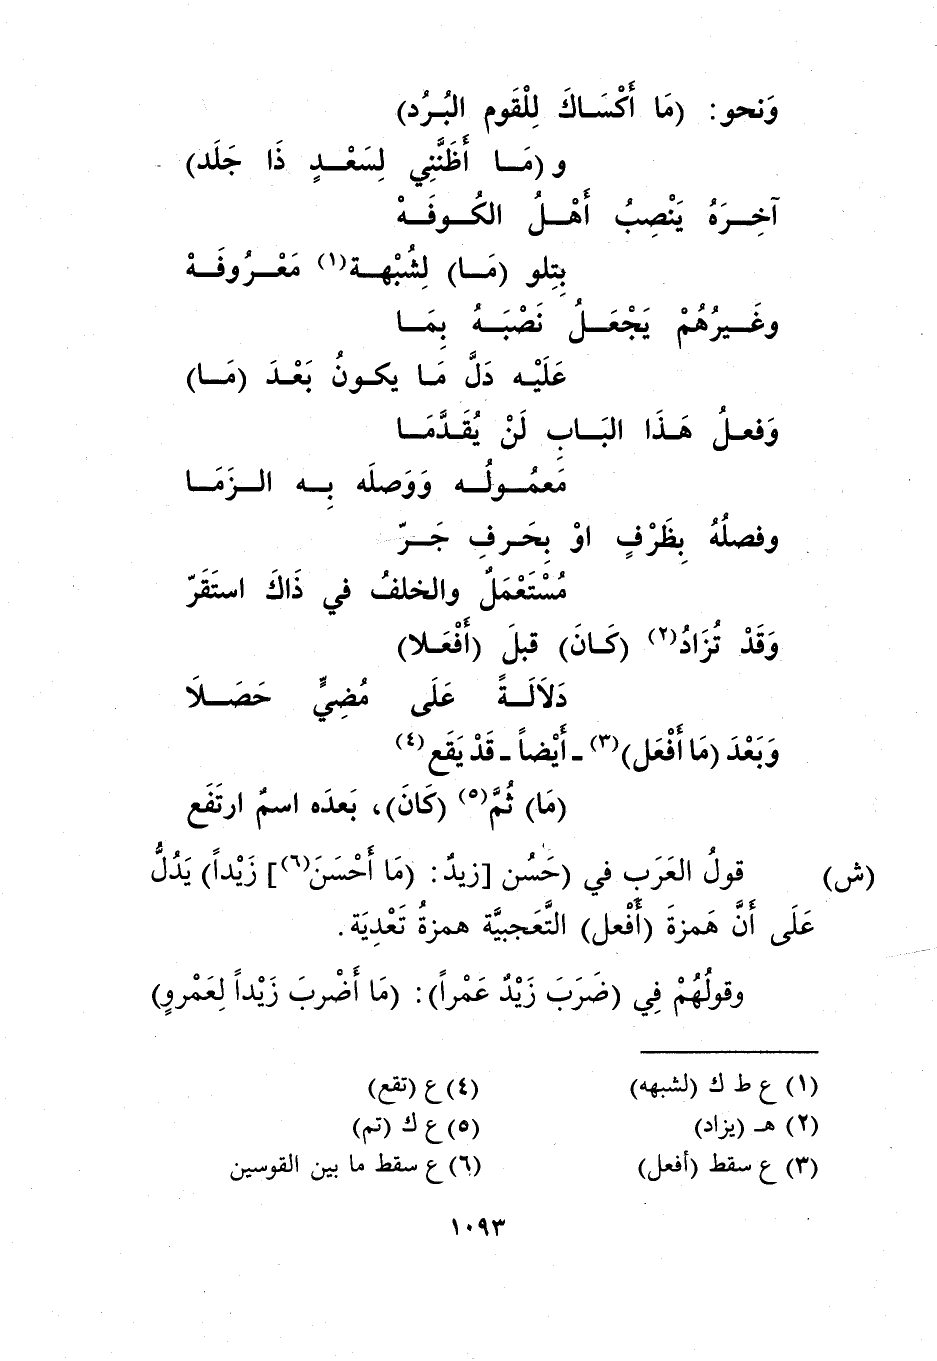 وَنحو: (مَا أَكْسَاكَ لِلْقَومِ البُرُد)
و (مَا أَظَنَّنِي لِسَعْدٍ ذَا جَلَد)
آخِرَهُ يَنْصِبُ أَهْلُ الكُوفَهْ
بِتِلو (مَا) لِشُبْهة(١) مَعْرُوفَهْ
وغَيرُهُمْ يَجْعَلُ نَصْبَهُ بِمَا
عَلَيْه دَلَّ مَا يكونُ بَعْدَ (مَا)
وَفعلُ هَذَا البَابِ لَنْ يُقَدَّمَا
مَعمُولُه وَوَصلَه بِه الزَمَا
وفصلُهُ بِظَرْفٍ اوْ بِحَرفِ جَرّ
مُسْتَعْمَلٌ والخلفُ في ذَاكَ استَقَرّ
وَقَدْ تُزَادُ(٢) (كَانَ) قبلَ (أَفْعَلا)
دَلاَلَةً عَلَى مُضِيٍّ حَصَلاَ
وَبَعْدَ (مَا أَفْعَل)(٣) ـ أَيْضاً ـ قَدْ يَقَع(٤)
(مَا) ثُمَّ(٥) (كَانَ)، بَعدَه اسمٌ ارتَفَع
(ش) قولُ العَرَبِ في (حَسُن [زيدٌ: (مَا أَحْسَنَ(٦)] زَيْداً) يَدُلُّ
عَلَى أَنَّ هَمزةَ (أَفْعل) التَّعَجبيَّة همزةُ تَعْدِيَة.
وقولُهُمْ فِي (ضَرَبَ زَيْدٌ عَمْراً): (مَا أَضْربَ زَيْداً لِعَمْروٍ)
(١) ع ط ك (لشبهه)
(٢) هـ (يزاد)
(٣) ع سقط (أفعل)
(٤) ع (تقع)
(٥) ع ك (تم)
(٦) ع سقط ما بين القوسين
١٠٩٣